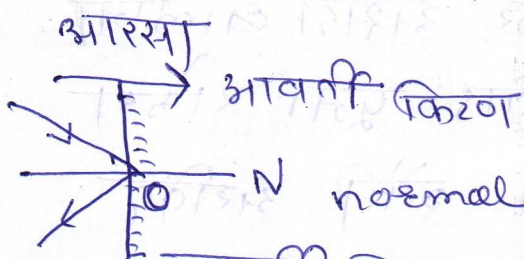 आरसा
आवर्ती किरण
N normal
O